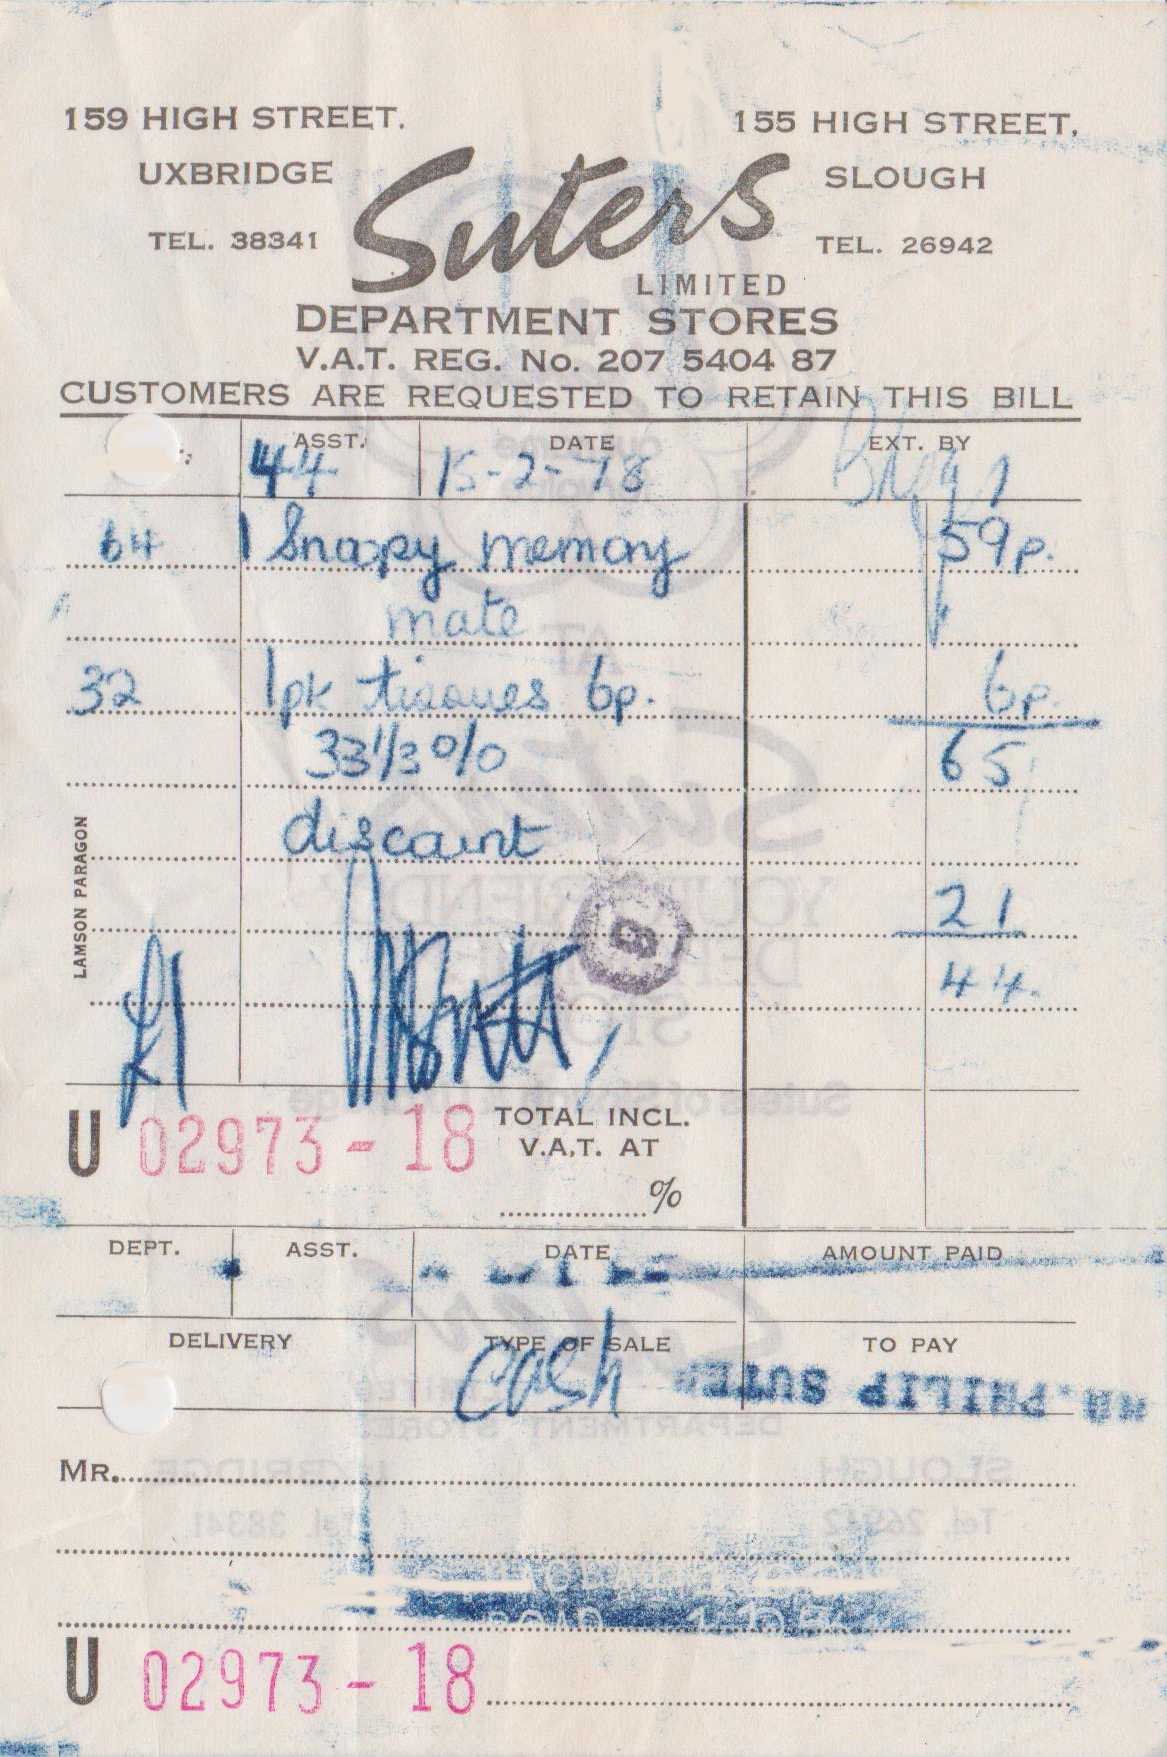 159 HIGH STREET. 155 HIGH STREET,
UXBRIDGE SLOUGH
TEL. 38341 TEL. 26942
Suters
LIMITED
DEPARTMENT STORES
V.A.T. REG. No. 207 5404 87
CUSTOMERS ARE REQUESTED TO RETAIN THIS BILL
ASST. DATE EXT. BY
44 15-2-78
64 1 Snappy memory 59p.
mate
32 1pk tissues 6p. 6p.
33 1/3 % 65
discount
LAMSON PARAGON
21
44.
£1
U 02973-18 TOTAL INCL.
V.A.T. AT
%
DEPT. ASST. DATE AMOUNT PAID
DELIVERY TYPE OF SALE TO PAY
cash
MR. PHILIP SUTER
MR.
U 02973-18